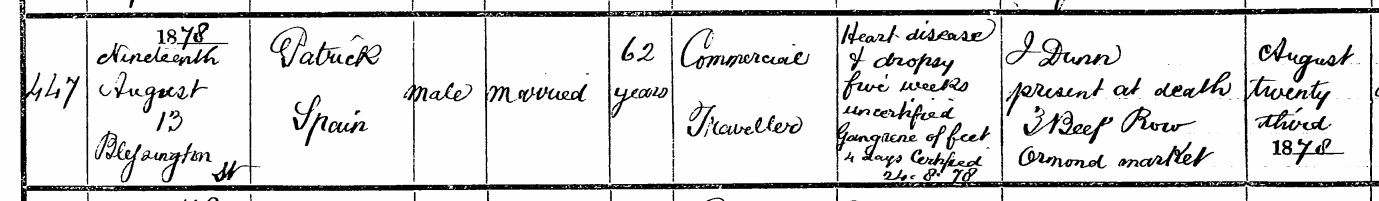 447
1878
Nineteenth
August
13
Blessington
St
Patrick
Spain
male
married
62
years
Commercial
Traveller
Heart disease
& dropsy
five weeks
uncertified
Gangrene of feet
4 days Certified
24. 8. 78
J Dunn
present at death
3 Beef Row
Ormond market
August
twenty
third
1878